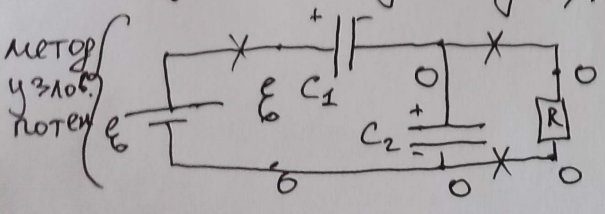 метод
узлов.
потен
ℰ
+
ℰ
C₁
0
C₂
+
-
R
0
0
0
0